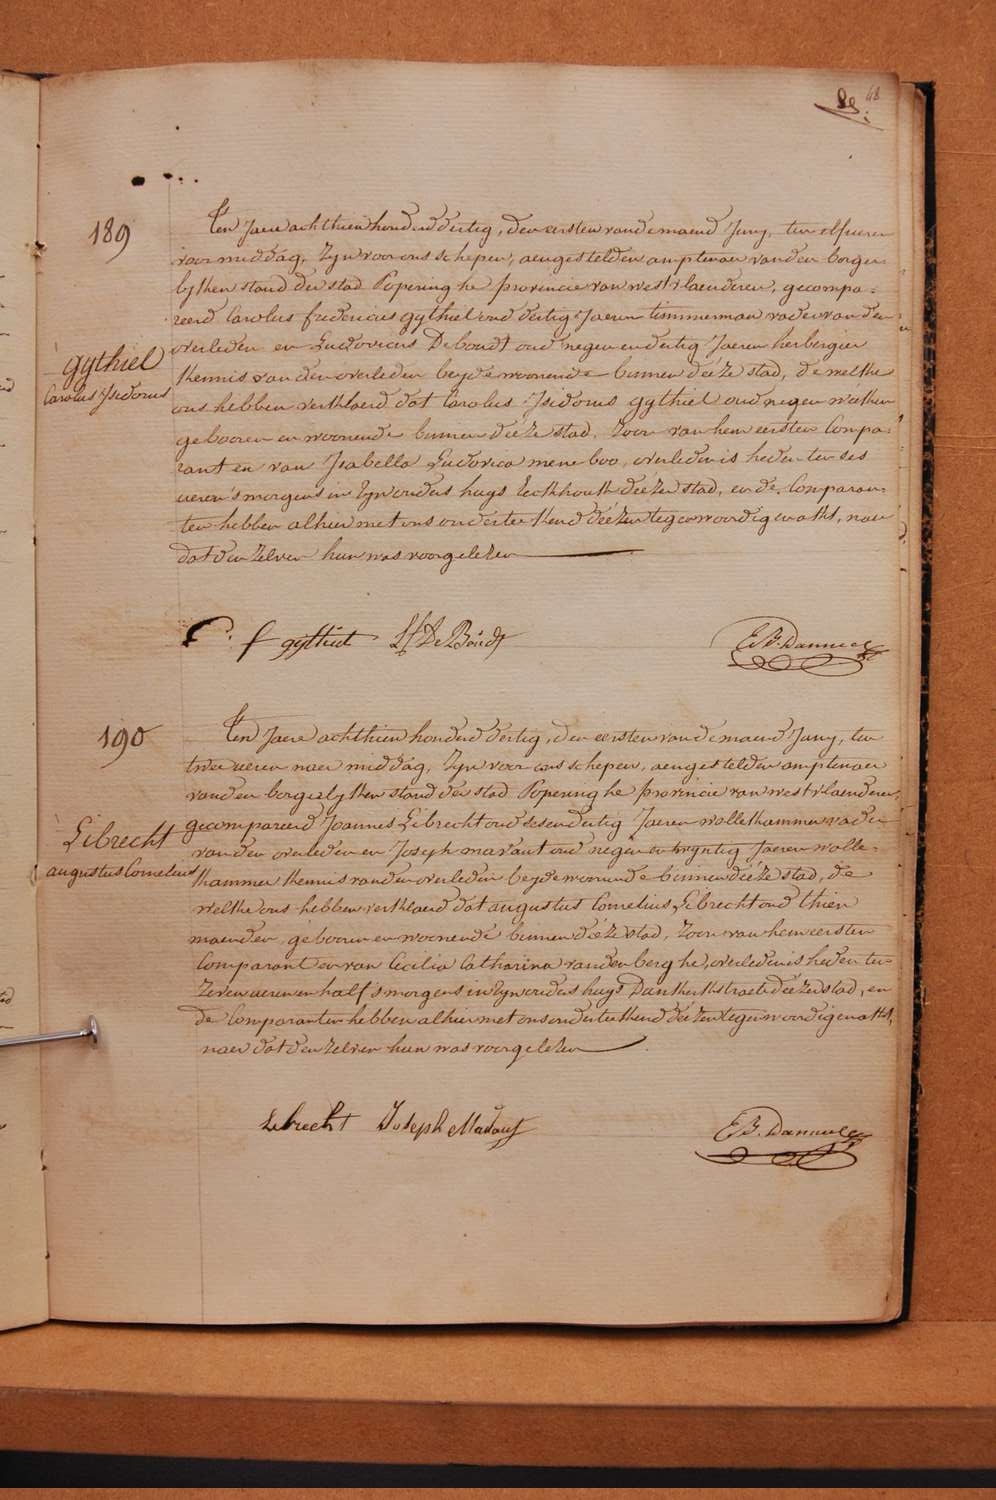 48
189
Ten Jaere achthien honderd dertig, den eersten van de maend Juny, ten elf ueren
voor middag, Zijn voor ons schepen, aengestelden amptenaer van den borger-
lyken stand der stad Poperinghe provincie van westvlaenderen, gecompa-
reerd Carolus fredericus gythiel oud dertig Jaeren timmerman vader van den
gythiel
overleden en Ludovicus Deboudt oud negenendertig Jaeren herbergier
Carolus Isidorus
kennis van den overleden beyde woonende binnen déeze stad, de welke
ons hebben verklaerd dat Carolus Isidorus gythiel oud negen weeken
gebooren en woonende binnen déeze stad, Zoon van hem eersten Compa-
rant en van Isabella Ludovica meneboo, overleden is heden ten ses
ueren 's morgens in Zyn ouders huys Eeckhoutk déezer stad, en de Comparan-
ten hebben alhier met ons onderteekend déezen tegenwoordigen akt, naer
dat den zelven hun was voorgelezen
C. f gythiel L F De Boudt
190
Ten Jaere achthien honderd dertig, den eersten van de maend Juny, ten
twee ueren naer middag, Zyn voor ons schepen, aengestelden amptenaer
van den borgerlyken stand der stad Poperinghe provincie van westvlaenderen,
gecompareerd Joannes Librecht oud sesendertig Jaeren wollekammer vader
Librecht
van den overleden en Joseph marant oud negen en twyntig Jaeren wolle-
augustus Cornelius
kammer kennis van den overleden beyde woonende binnen déeze stad, de
welke ons hebben verklaerd dat augustus Cornelius Librecht oud thien
maenden, gebooren en woonende binnen déeze stad, Zoon van hem eersten
Comparant en van Cecilia Catharina vanden berghe, overleden is heden ten
Zeven ueren en half 's morgens in Zyn ouders huys Dunkerkstraete déezer stad, en
de Comparanten hebben alhier met ons onderteekend déezen tegenwoordigen akt,
naer dat den zelven hun was voorgelezen
Lebrecht Joseph